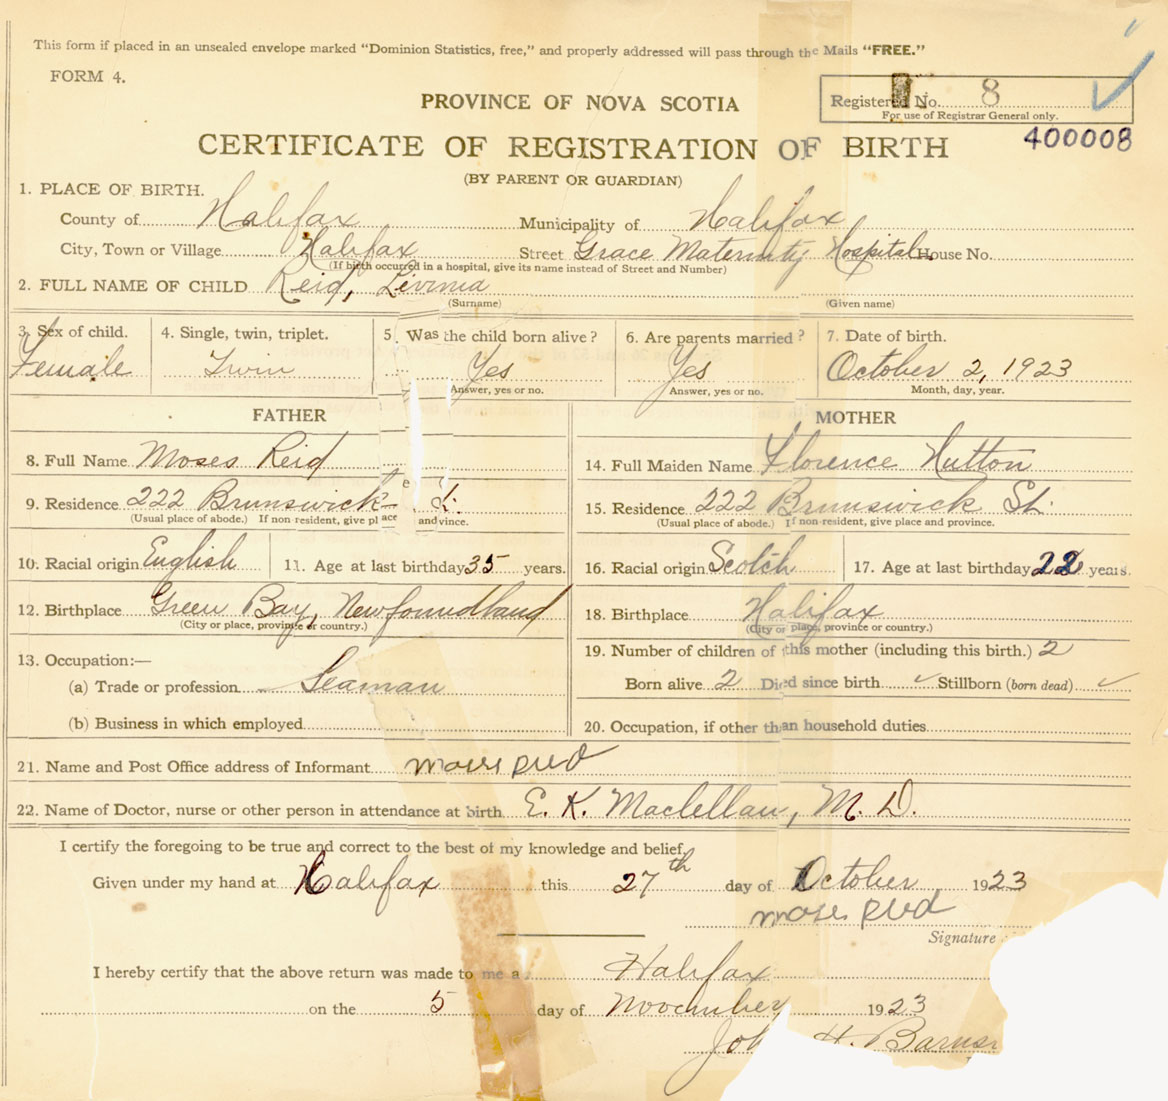 This form if placed in an unsealed envelope marked "Dominion Statistics, free," and properly addressed will pass through the Mails "FREE."
FORM 4.
PROVINCE OF NOVA SCOTIA
Registered No. 8
For use of Registrar General only.
400008
CERTIFICATE OF REGISTRATION OF BIRTH
(BY PARENT OR GUARDIAN)
1. PLACE OF BIRTH.
County of Halifax Municipality of Halifax
City, Town or Village Halifax Street Grace Maternity Hospital House No.
(If birth occurred in a hospital, give its name instead of Street and Number)
2. FULL NAME OF CHILD Reid, Levinia
(Surname) (Given name)
3. Sex of child. 4. Single, twin, triplet. 5. Was the child born alive? 6. Are parents married? 7. Date of birth.
Female Twin Yes Yes October 2, 1923
Answer, yes or no. Answer, yes or no. Month, day, year.
FATHER
8. Full Name Moses Reid
9. Residence 222 Brunswick St.
(Usual place of abode.) If non-resident, give place and vince.
10. Racial origin English 11. Age at last birthday 35 years.
12. Birthplace Green Bay, Newfoundland
(City or place, province or country.)
13. Occupation:—
(a) Trade or profession Seaman
(b) Business in which employed
MOTHER
14. Full Maiden Name Florence Hutton
15. Residence 222 Brunswick St.
(Usual place of abode.) If non-resident, give place and province.
16. Racial origin Scotch 17. Age at last birthday 22 years.
18. Birthplace Halifax
(City or place, province or country.)
19. Number of children of this mother (including this birth.) 2
Born alive 2 Died since birth ✓ Stillborn (born dead) ✓
20. Occupation, if other than household duties
21. Name and Post Office address of Informant Moses Reid
22. Name of Doctor, nurse or other person in attendance at birth E. K. Maclellan, M. D.
I certify the foregoing to be true and correct to the best of my knowledge and belief,
Given under my hand at Halifax this 27th day of October 1923
Moses Reid
Signature
I hereby certify that the above return was made to me a Halifax
on the 5 day of November 1923
Joh H. Barns